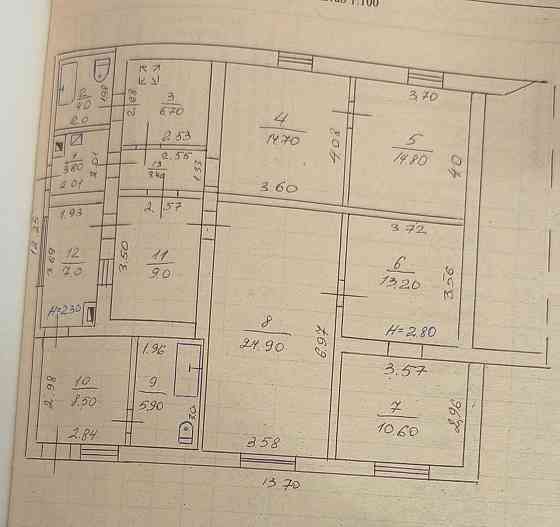 1:100
2
4.0
2.0
1.98
3
6.70
2.88
2.53
4
14.70
3.60
4.08
3.70
5
14.80
4.0
1
3.80
2.01
2.01
13
3.40
2.55
1.33
1.93
12
7.0
3.69
H=2.30
12.25
2.57
11
9.0
3.50
3.72
6
13.20
3.56
H=2.80
8
24.90
6.97
3.58
10
8.50
2.98
2.84
1.96
9
5.90
3.0
3.57
7
10.60
2.96
13.70